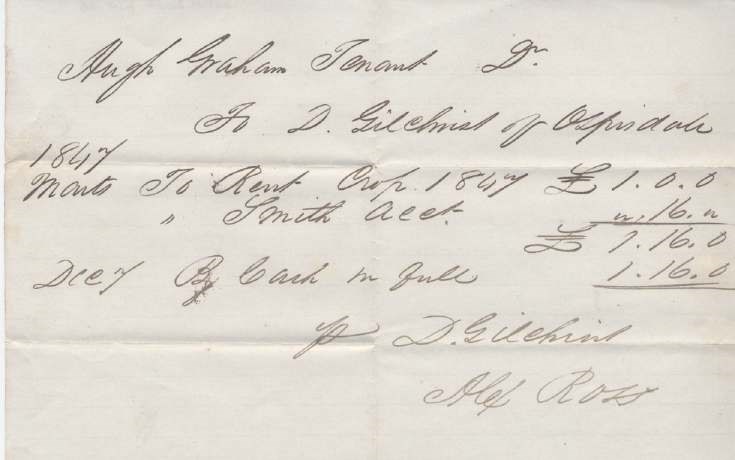 Hugh Graham Tenant Dr
To D. Gilchrist of Ospisdale
1847
Marts To Rent Crop 1847 £ 1.0.0
" Smith Acct. ".16."
£ 1.16.0
Dec 7 By Cash in full 1.16.0
p D. Gilchrist
Alex Ross